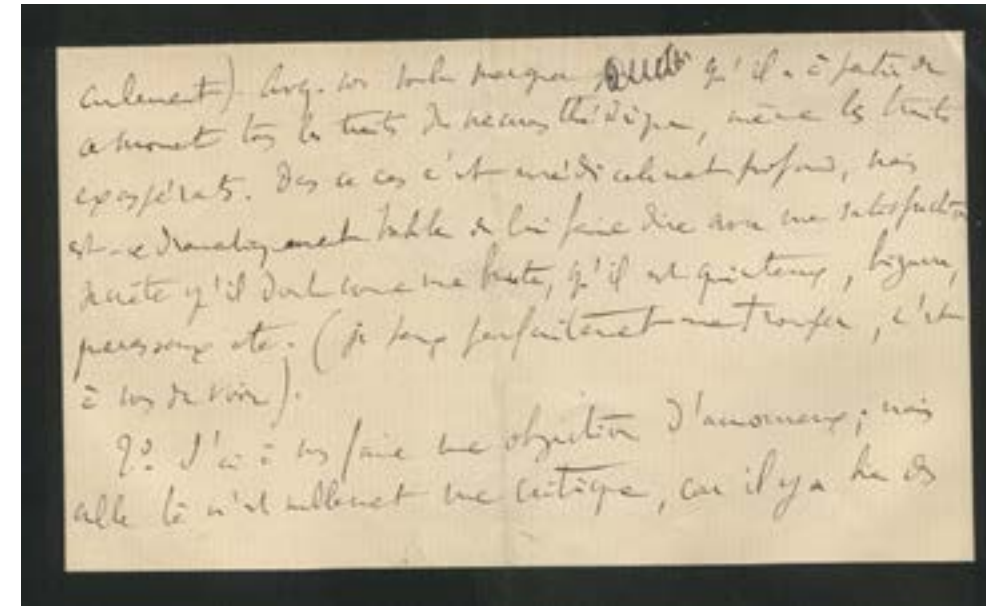 culement) qu'il a à partir de
ce moment tous les traits du neurasthénique, même les traits
exaspérants. Dans ce cas c'est médicalement profond, mais
est-ce dramatiquement de lui faire dire avec une satisfaction
secrète qu'il dort comme une brute, qu'il est quinteux, bizarre,
paresseux etc. (je peux parfaitement me tromper, c'est
à vous de voir).
J'ai à vous faire une objection d'amoureux; mais
celle là n'est nullement une critique, car il y a des